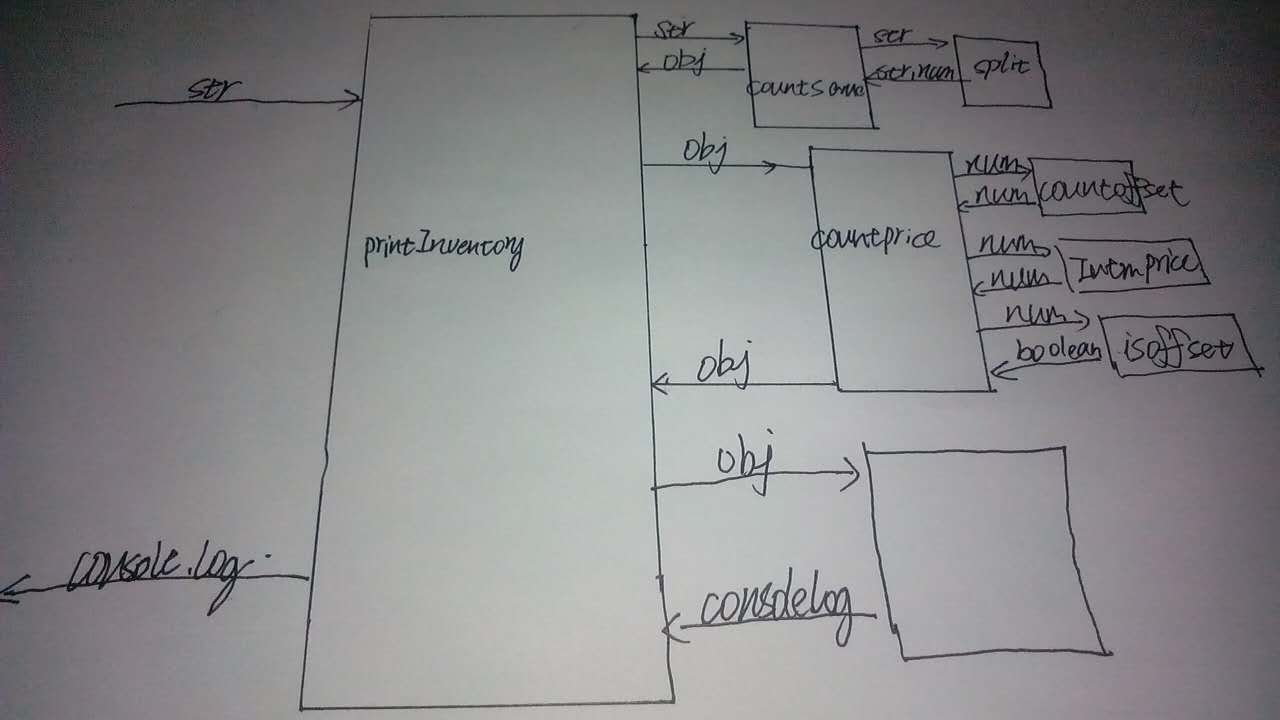 str
printInventory
console.log
str
obj
countsame
str
str,num
split
obj
countprice
num
num
countoffset
num
num
num
boolean
isoffset
obj
obj
consolelog